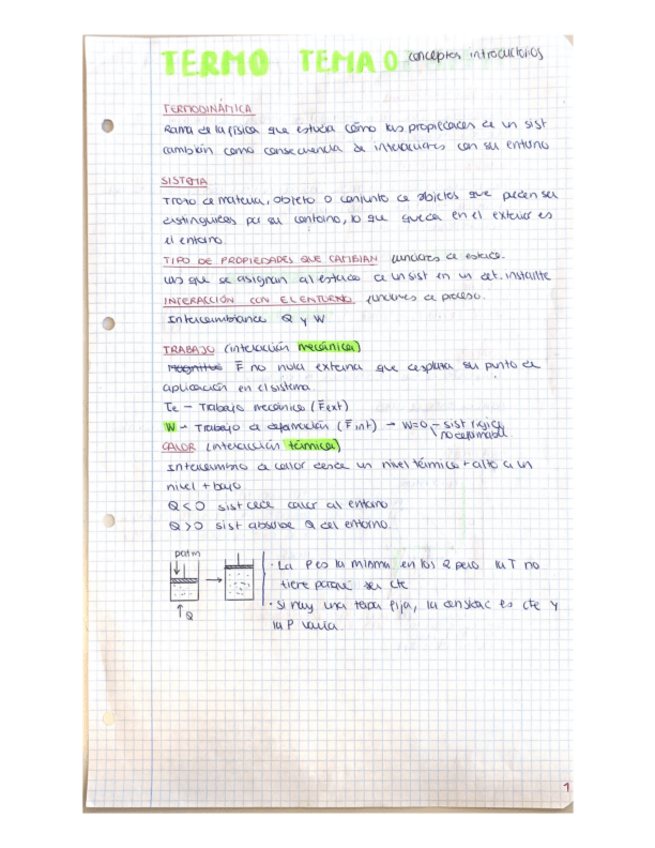 TERMO TEMA 0 conceptos introductorios
TERMODINÁMICA
Rama de la física que estudia cómo las propiedades de un sist
cambian como consecuencia de interacciones con su entorno
SISTEMA
Trozo de materia, objeto o conjunto de objetos que pueden ser
distinguidos por su contorno, lo que queda en el exterior es
el entorno.
TIPO DE PROPIEDADES QUE CAMBIAN funciones de estado.
Las que se asignan al estado de un sist en un det. instante
INTERACCIÓN CON EL ENTORNO funciones de proceso.
Intercambiando Q y W
TRABAJO (interacción mecánica)
Magnitud F no nula externa que desplaza su punto de
aplicación en el sistema.
Te - Trabajo mecánico (Fext)
W - Trabajo de deformación (Fint) → W=0 - sist rígido
no deformable
CALOR (interacción térmica)
Intercambio de calor desde un nivel térmico + alto a un
nivel + bajo
Q < 0 sist cede calor al entorno
Q > 0 sist absorbe Q del entorno.
patm
Q
· La P es la misma en los 2 pero la T no
tiene porqué ser cte
· Si hay una tapa fija, la densidad es cte y
la P varía.
1